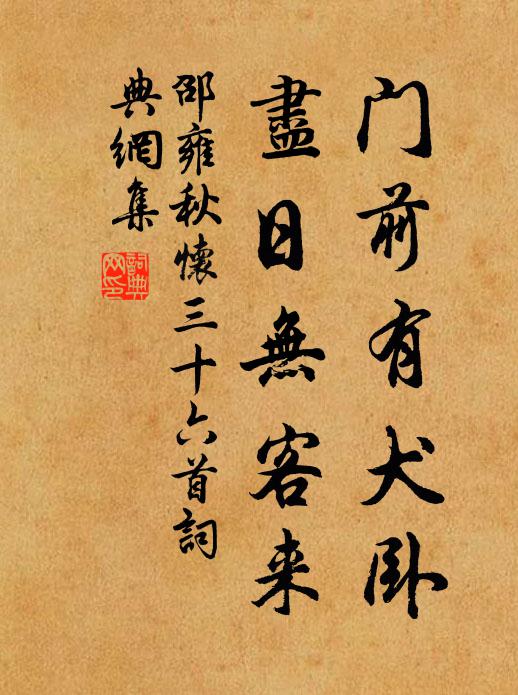 门前有犬卧
盡日無客来
邵雍秋懷三十六首詞
典網集
詞典網印